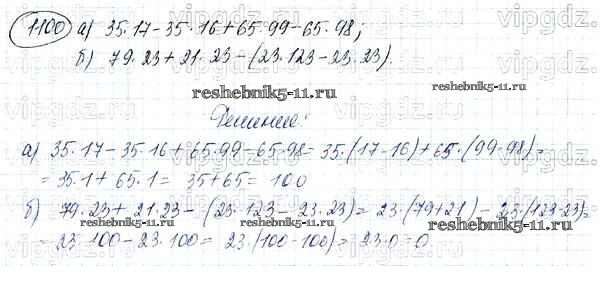 1100 а) 35·17-35·16+65·99-65·98;
б) 79·23+21·23-(23·123-23·23).
reshebnik5-11.ru
Решение:
а) 35·17-35·16+65·99-65·98=35·(17-16)+65·(99-98)=
=35·1+65·1=35+65=100
б) 79·23+21·23-(23·123-23·23)=23·(79+21)-23·(123-23)=
=23·100-23·100=23·(100-100)=23·0=0
reshebnik5-11.ru
reshebnik5-11.ru